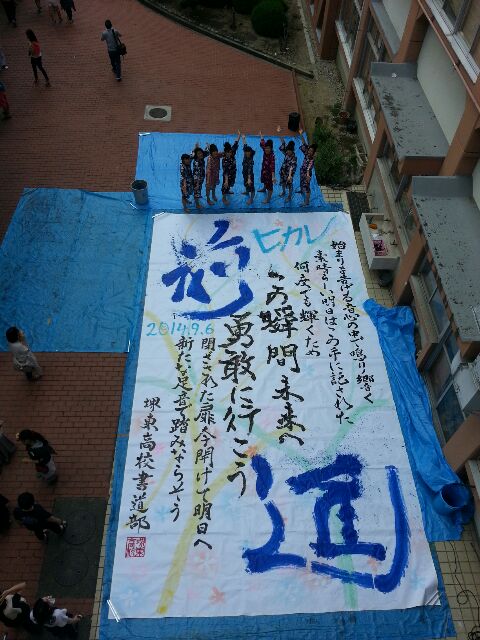 ヒカレ
始まりを告げる音心の奥で鳴り響く
素晴らしい明日はこの手に記された
何度でも輝くため
この瞬間未来へ
勇敢に行こう
閉ざされた扉今開けて明日へ
新たな足音で踏みならそう
2014.9.6
堺東高校書道部